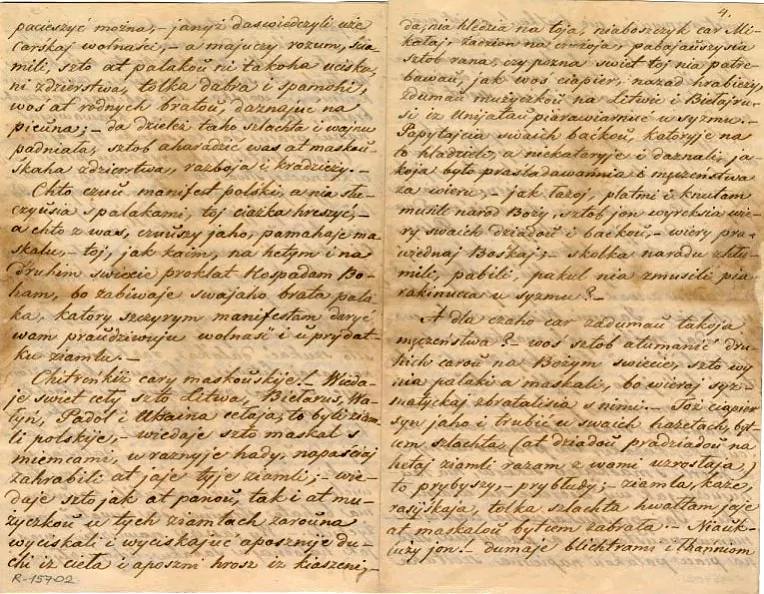 pacieszyć można, – janyż daswiedczyli uże
Carskaj wolnaści, – a majuczy rozum, sia-
mili, szto at palakoŭ ni takoha ucisku,
ni zdzierstwa, tolka dabra i spamohi,
woś at rodnych bratoŭ, daznajuć na
pieŭna; – da dzieleż taho szlachta i wajnu
padniała, sztob aharadzić was at maskoŭ-
skaha zdzierstwa, razboja i kradzieży. –
Chto czuŭ manifest polski, a nia słu-
czyŭsia s palakami, toj ciażka hreszyć, –
a chto z was, czuŭszy jaho, pamahaje ma-
skalu, – toj, jak Kaim, na hetym i na
druhim swiecie proklat Hospadam Bo-
ham, bo zabiwaje swajaho brata pala-
ka, katory szczyrym manifestam daryć
wam praŭdziwuju wolnaść i u prydat-
ku ziamlu. –
Chitreńkiż cary maskoŭskije! Wieda-
je świet cety szto Litwa, Biełaruś, Wa-
łyń, Padol i Ukaina cełaja, to byli ziam-
li polskije, – wiedaje szto maskal s
niemcami, u raznyje hady, napaściaj
zahrabili at jaje tyje ziamli; – wie-
daje szto jak at panoŭ, tak i at mu-
życzkoŭ u tych ziamlach zaroŭna
wyciskali i wyciskajuć aposznije du-
chi iz cieła i aposzni hrosz iz kiaszeni; –
R-15702
4.
da, nia hledzia na toja, niaboszczyk car Mi-
kałaj, zaczion na
sztob rana, czy pozna świet toj nia patre-
bawaŭ, jak woś ciapier, nazad hrabieży,
zdumaŭ mużyczkoŭ na Litwie i Biełaj ru-
si iz Unijataŭ piarawiarnuć u syzmu. –
Papytajcia swaich baćkoŭ, katoryje na
to hladzieli, a niekatoryje i daznali, ja-
koja było prasladawannia i męczenstwa
za wieru, – jak łazoj, płatmi i knutam
musili narod Boży, sztob jon wyreksia wie-
ry swaich dziadoŭ i baćkoŭ – wiery pra-
wiednaj Boskaj; – skolka narodu
mili, pabili, pakul nia zmusili pia-
rakinucia u syzmu? –
A dla czaho car zadumaŭ takoja
męczenstwa? – woś sztob atumanić dru-
hich caroŭ na Bożym świecie, szto wy
nia palaki a maskali, bo wieraj syz-
matyckaj zbratalisia s nimi. – Toż ciapier
syn jaho i trubić u swaich hazetach, by-
cem szlachta, (at dziadoŭ pradziadoŭ na
hetaj ziamli razam z wami uzrosłaja,)
to prybyszy, – prybłudy; – ziamla, każe,
rasijskaja, tolka szlachta hwałtam jaje
at maskaloŭ bytcem zabrała. –
jon. – dumaje blichtrami i